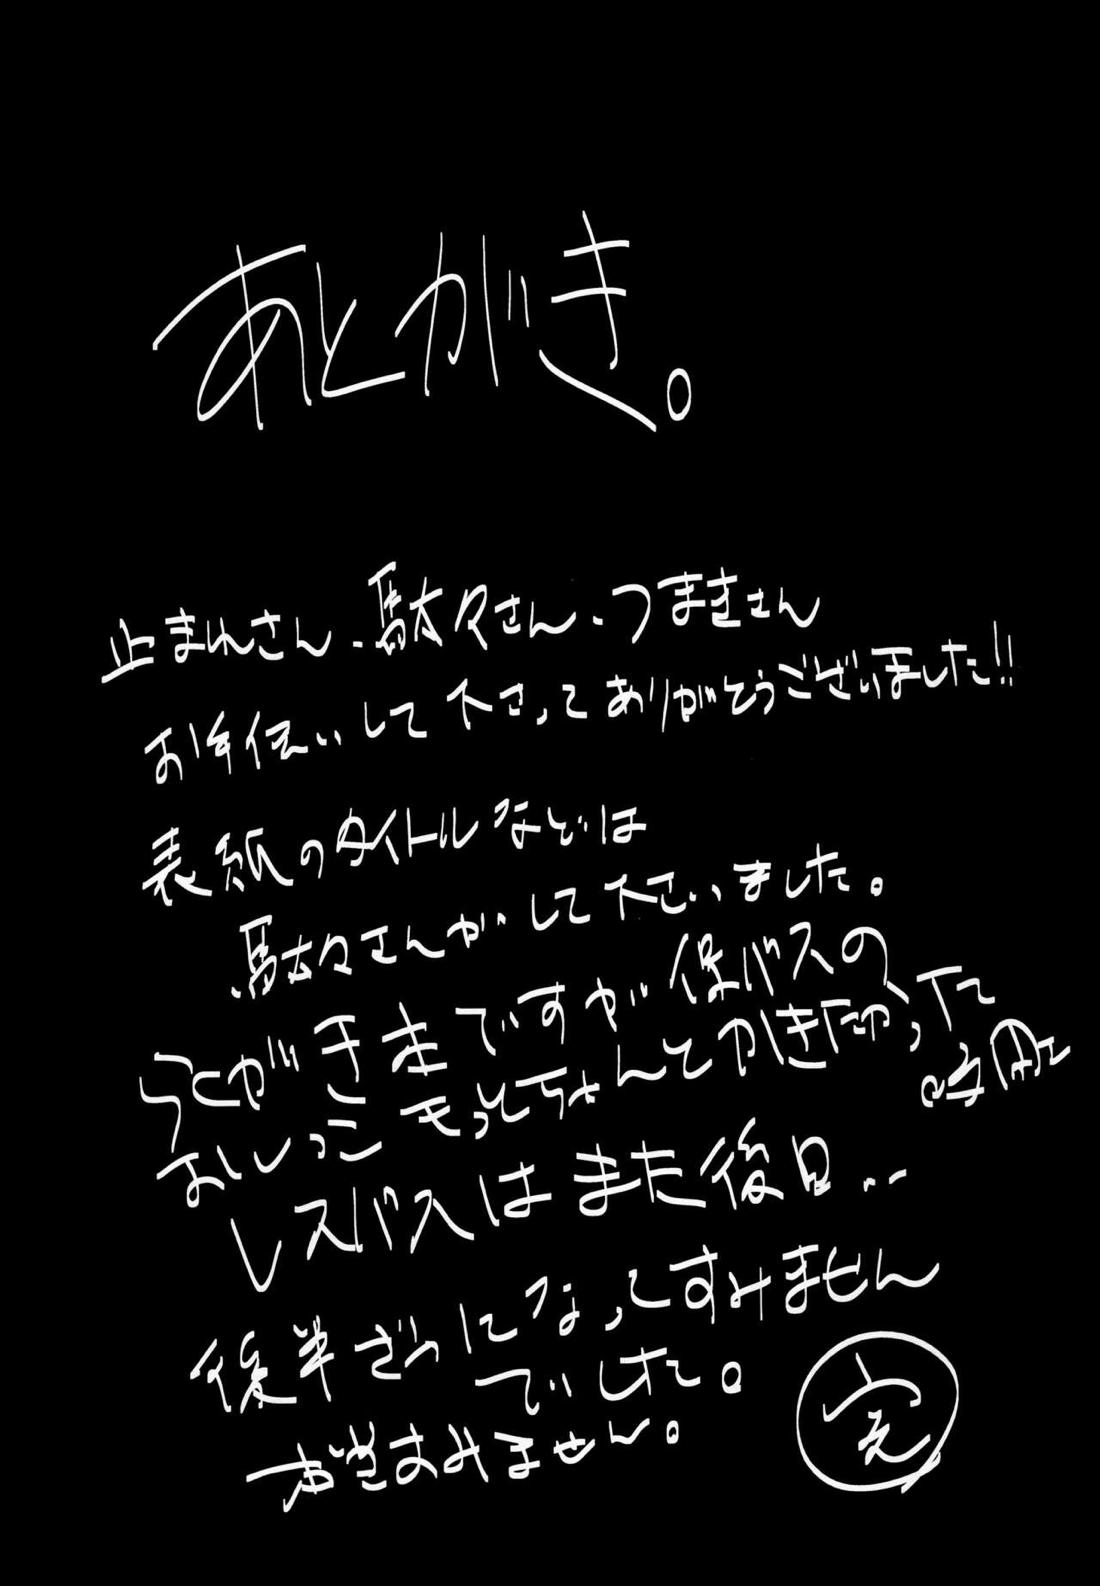 あとがき。
止まれさん、駄々さん、つまきさん
お手伝いして下さってありがとうございました!!
表紙のタイトルなどは
駄々さんがして下さいました。
らくがきまですが保バスの
おしっこもっとちゃんとかきたかった
レスバスはまた後日..
後半ざつになってすみません
でした。
すみません。
完